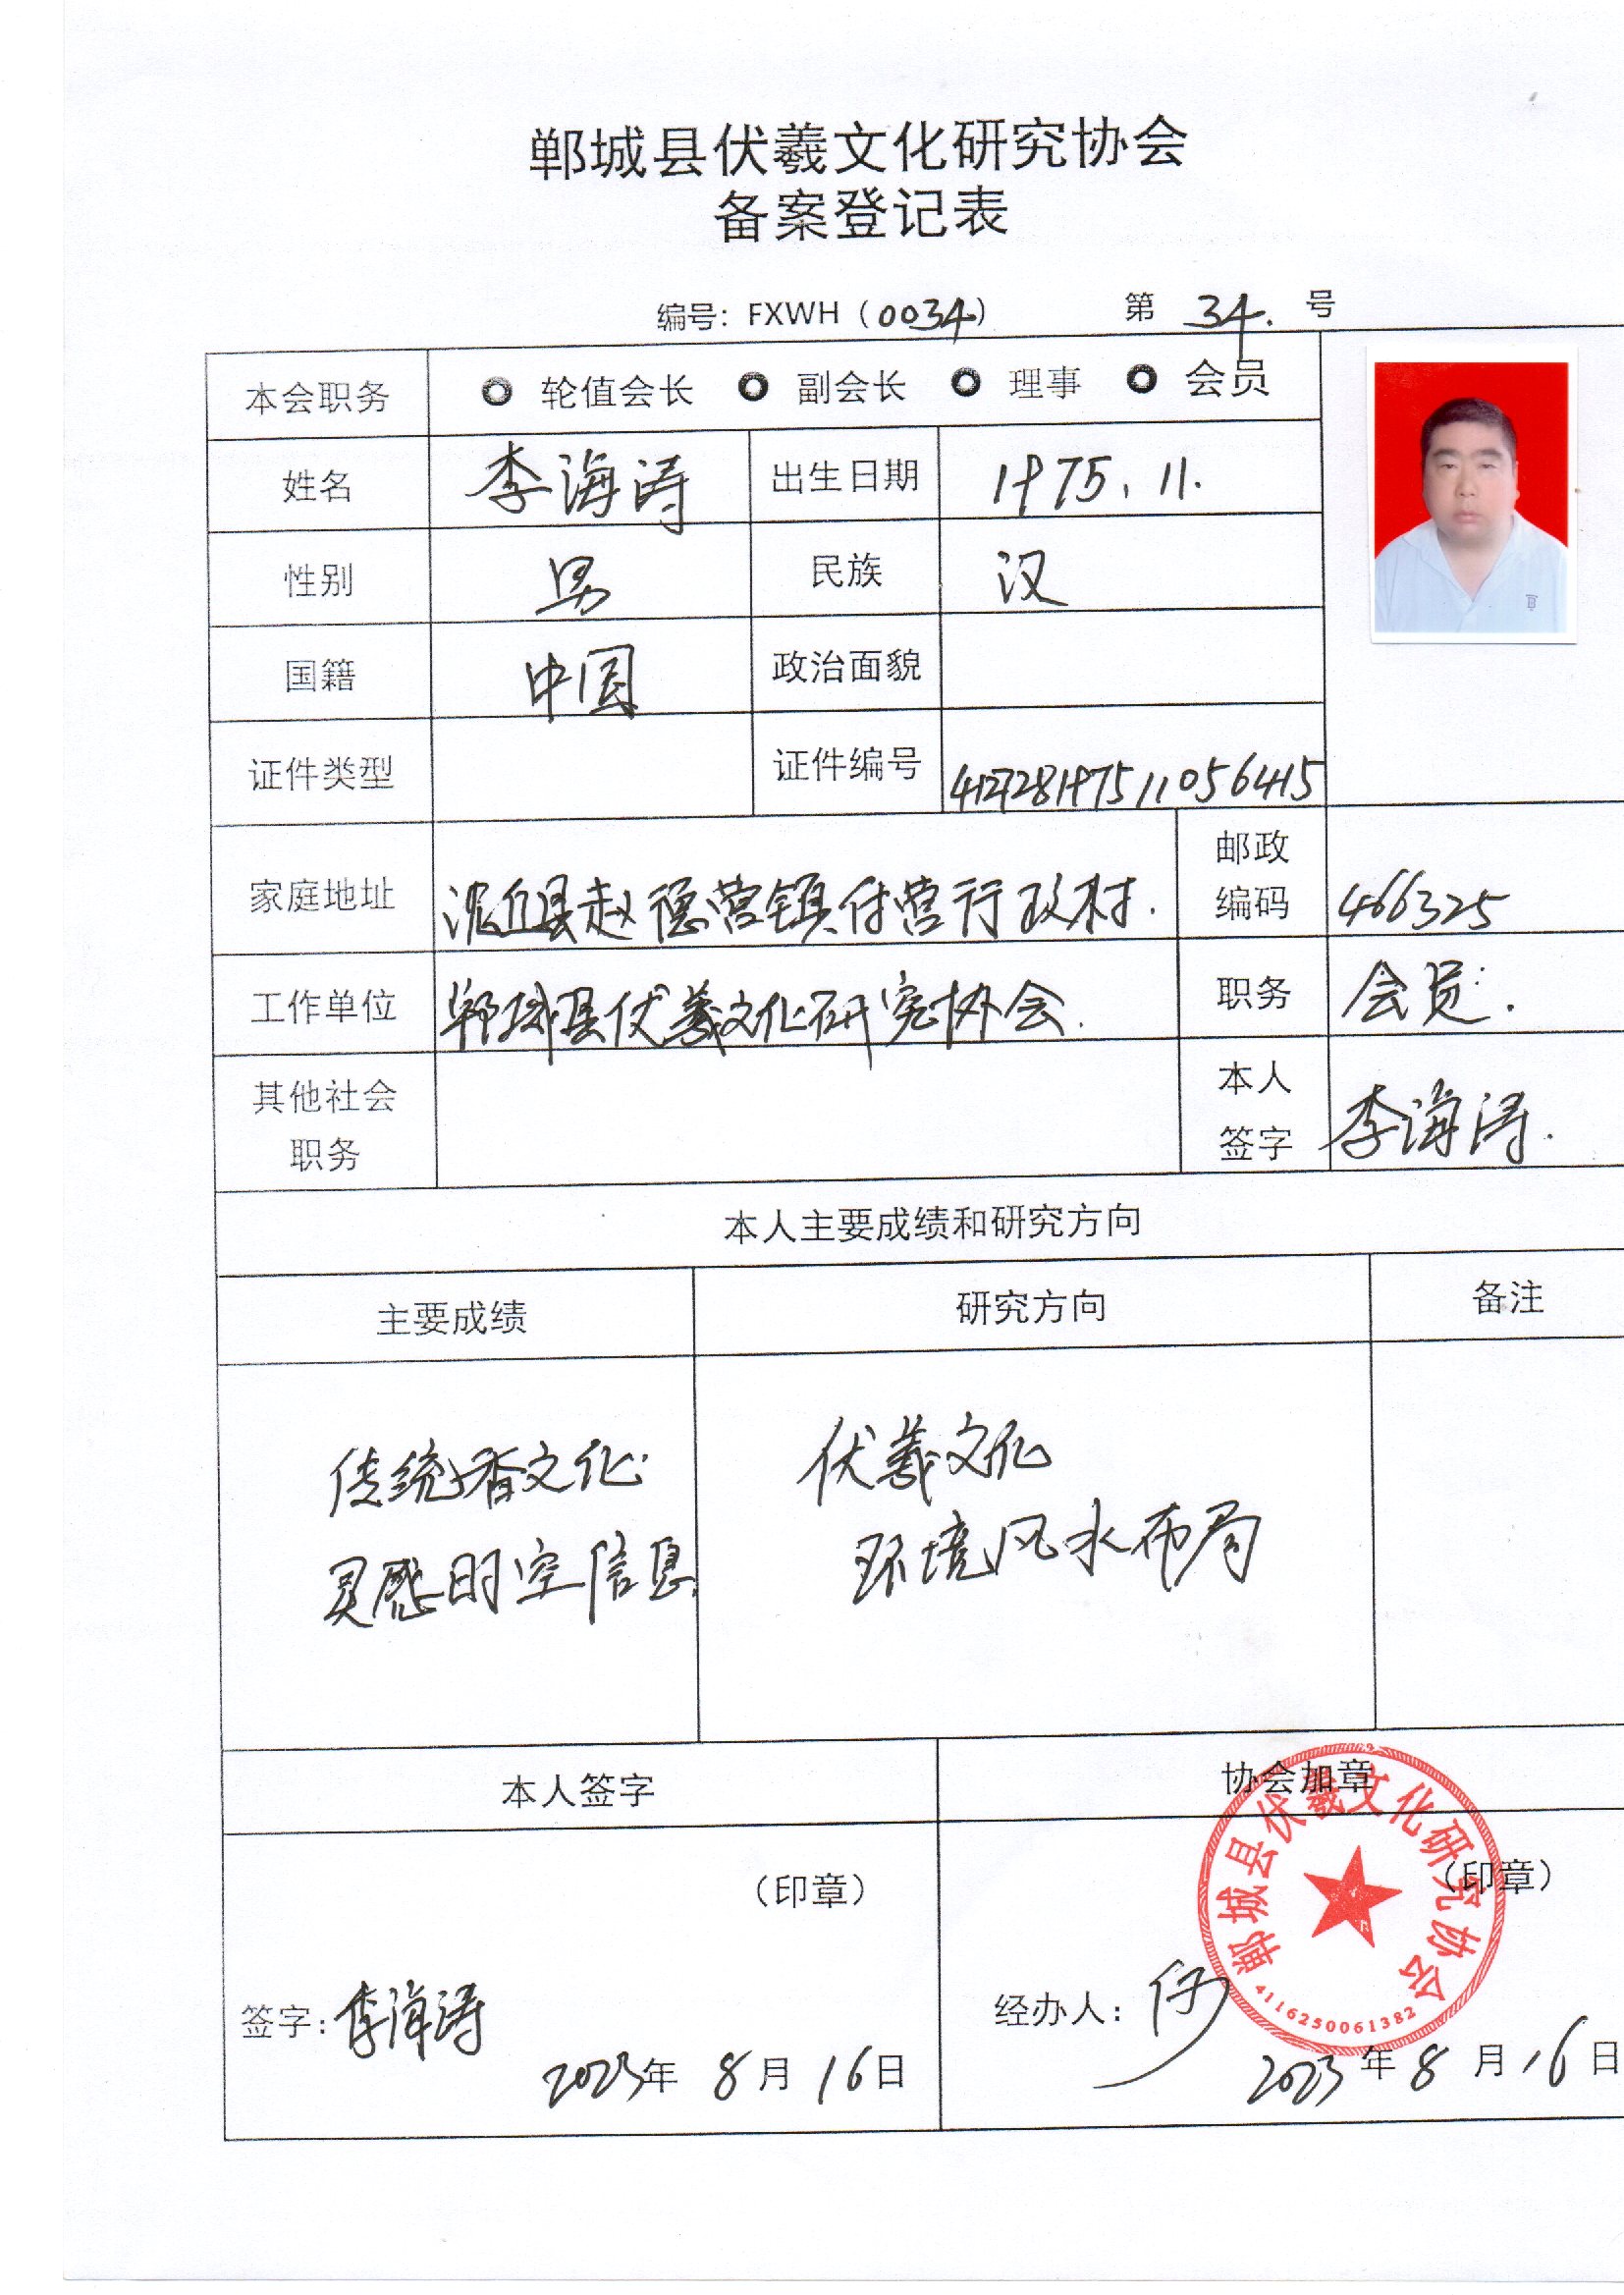 郸城县伏羲文化研究协会
备案登记表
编号：FXWH（0034） 第 34. 号
本会职务 轮值会长 副会长 理事 会员
姓名 李海涛 出生日期 1975.11.
性别 男 民族 汉
国籍 中国 政治面貌
证件类型 证件编号 412728197511056415
家庭地址 沈丘县赵德营镇付营行政村. 邮政编码 466325
工作单位 郸城县伏羲文化研究协会. 职务 会员.
其他社会职务 本人签字 李海涛.
本人主要成绩和研究方向
主要成绩 研究方向 备注
传统香文化. 伏羲文化
灵感时空信息 环境风水布局
本人签字 协会加章
（印章） （印章）
签字：李海涛 经办人：
2023年 8月16日 2023年8月16日
郸城县伏羲文化研究协会
4116250061382